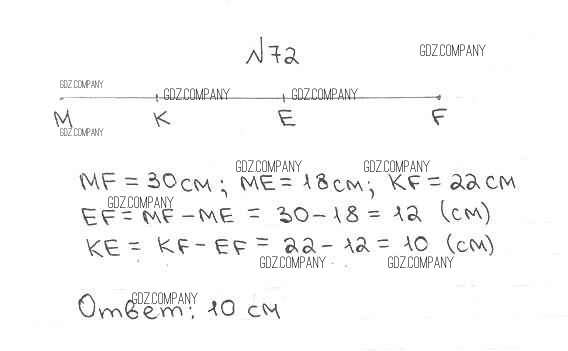 №72
GDZ.COMPANY
GDZ.COMPANY
GDZ.COMPANY GDZ.COMPANY
M K E F
GDZ.COMPANY
GDZ.COMPANY GDZ.COMPANY
MF = 30 см; ME = 18 см; KF = 22 см
GDZ.COMPANY
EF = MF - ME = 30 - 18 = 12 (см)
KE = KF - EF = 22 - 12 = 10 (см)
GDZ.COMPANY GDZ.COMPANY
GDZ.COMPANY
Ответ: 10 см